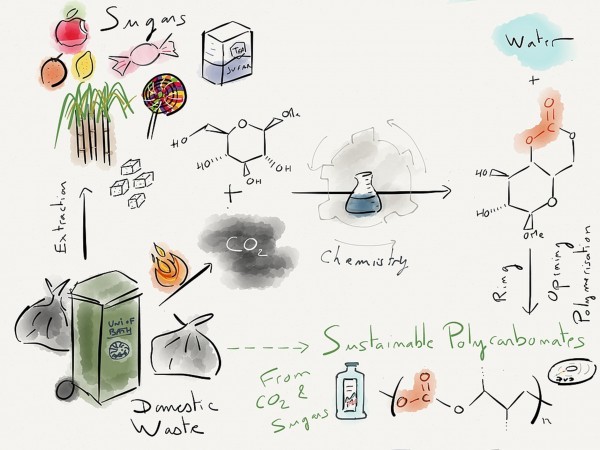 Sugars
Tea
Sugar
Water
+
O
O C
O
HO
O
HO
OMe
HO
O
OMe
HO
OH
OH
+
CO2
Chemistry
Extraction
Ring
Opining
Polymerisation
UNI OF
BATH
Domestic
Waste
Sustainable Polycarbonates
From
CO2 &
Sugars
O
O C
O
n